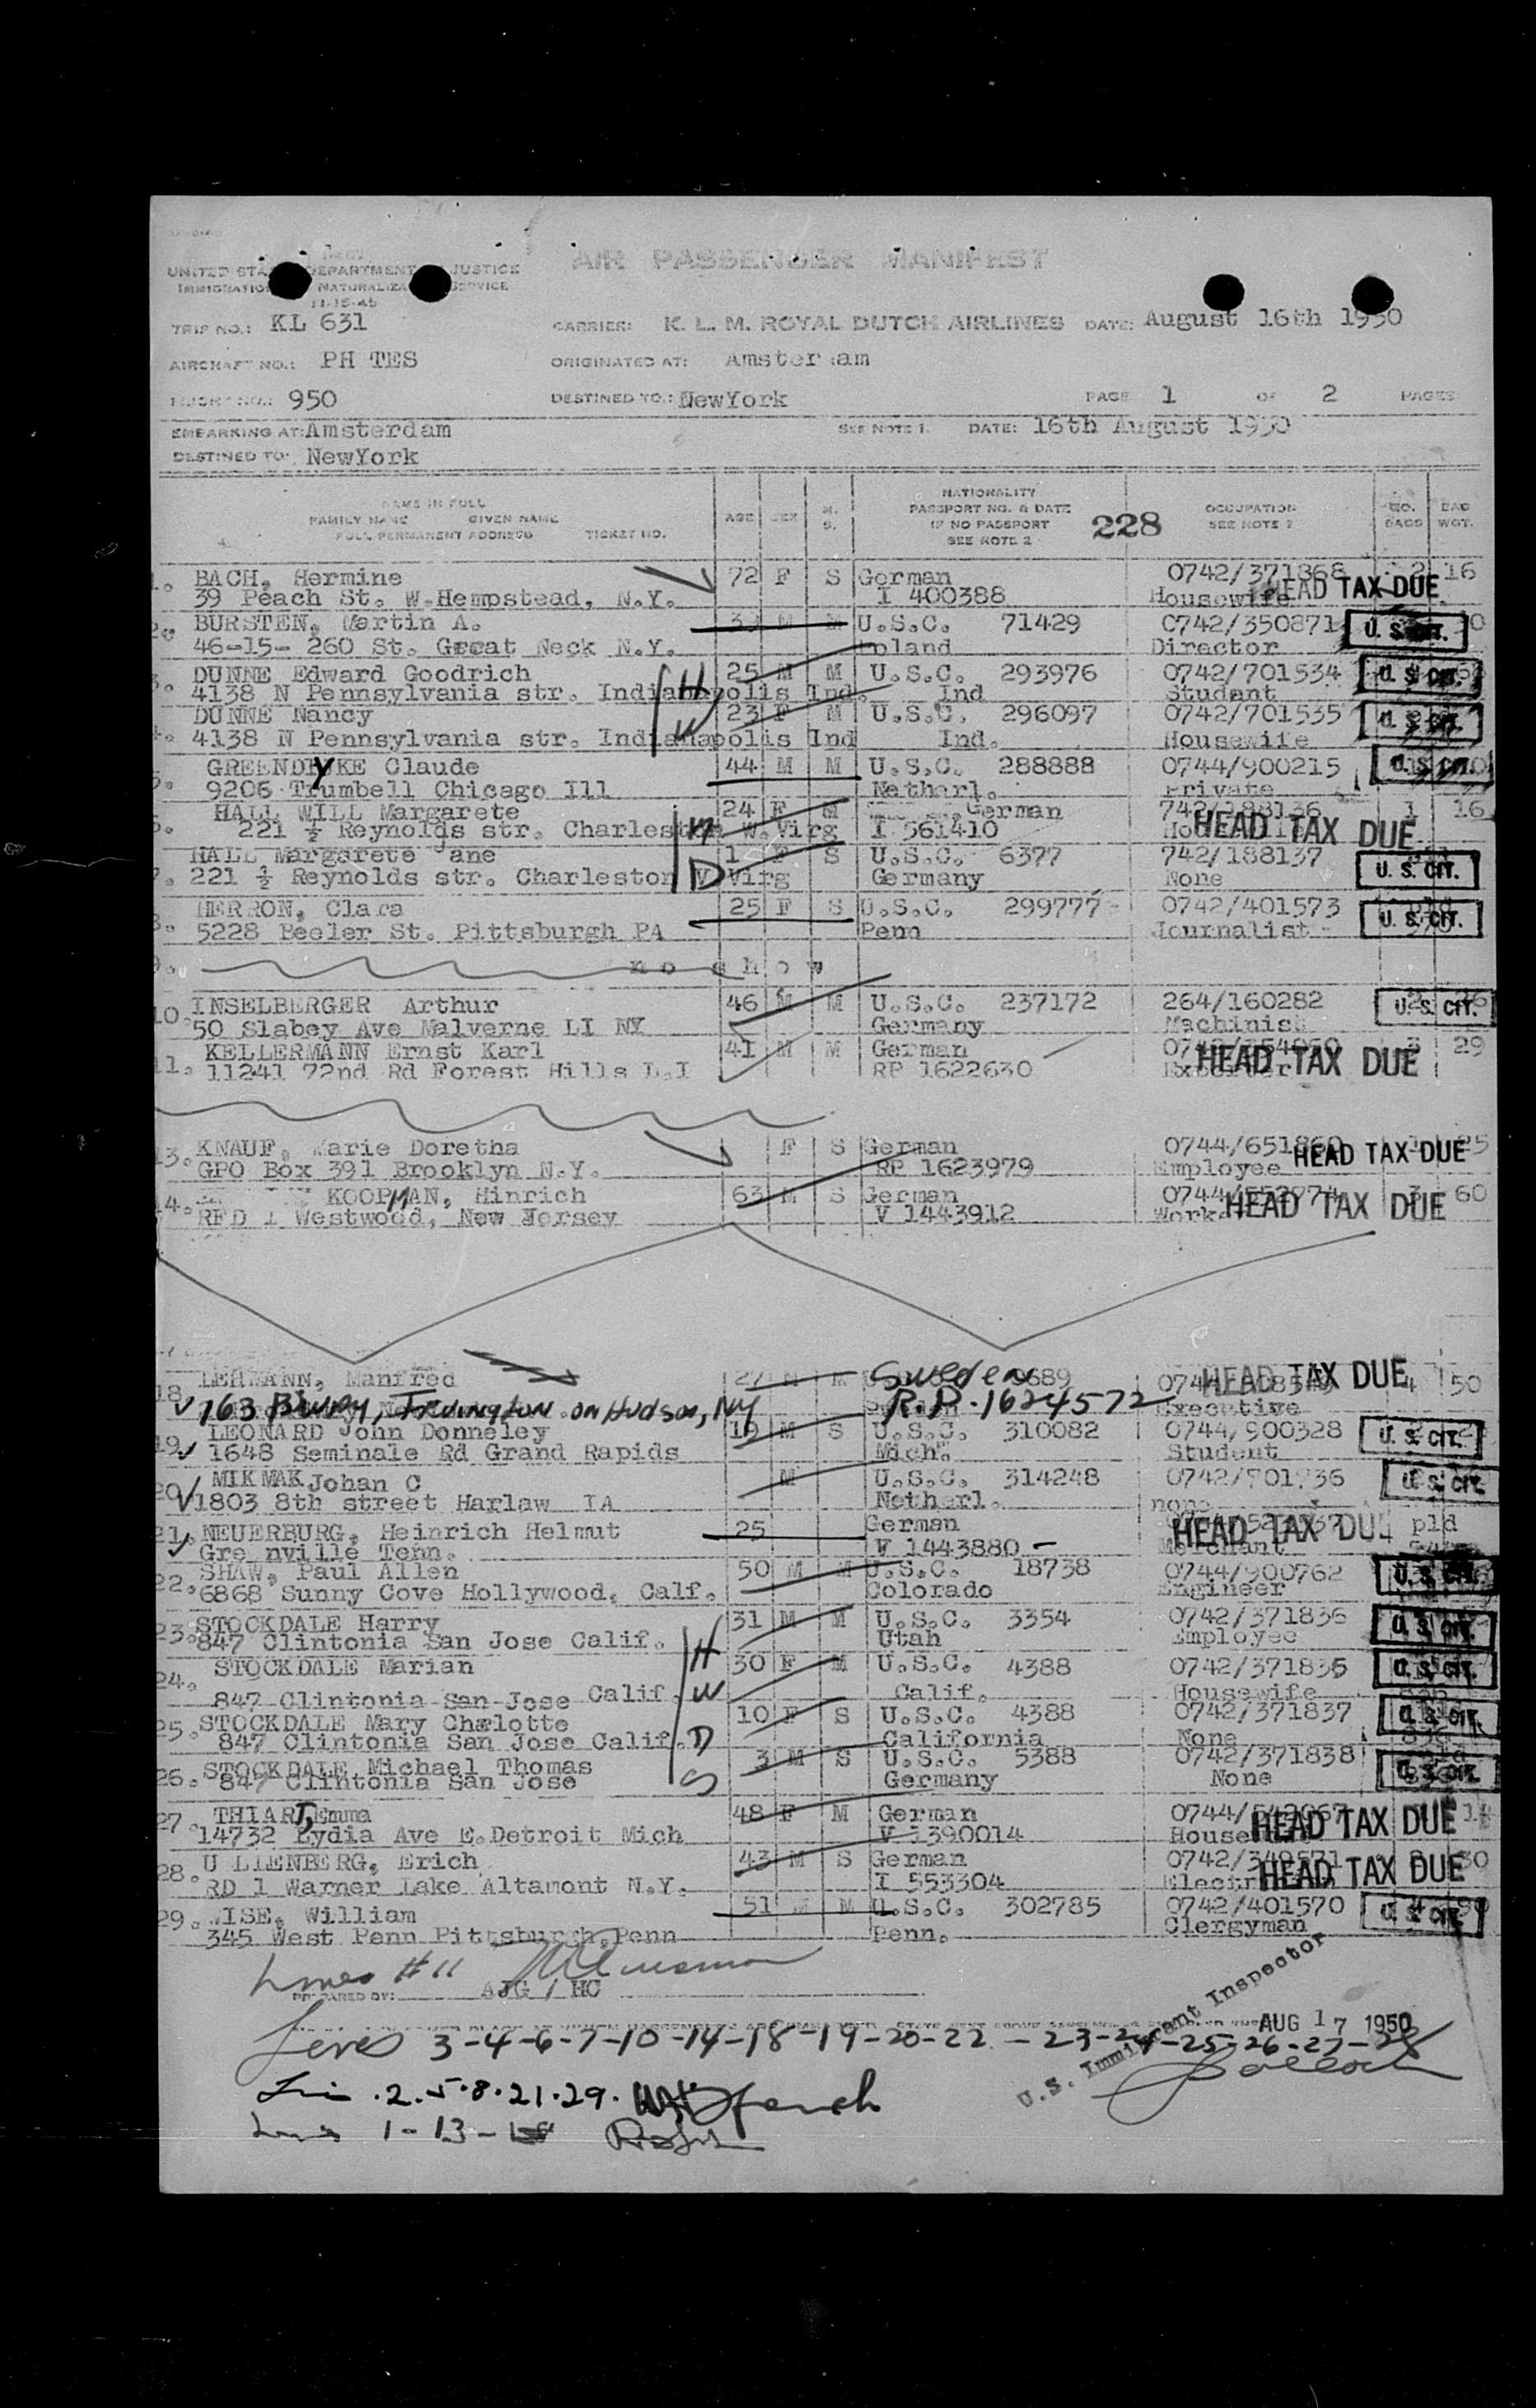 AIR PASSENGER MANIFEST
UNITED STATES DEPARTMENT JUSTICE
IMMIGRATION NATURALIZA SERVICE
11-15-45
TRIP NO.: KL 631 CARRIER: K. L. M. ROYAL DUTCH AIRLINES DATE: August 16th 1950
AIRCRAFT NO.: PH TES ORIGINATED AT: Amster am
FLIGHT NO.: 950 DESTINED TO.: NewYork PAGE 1 OF 2 PAGES
EMBARKING AT: Amsterdam SEE NOTE 1. DATE: 16th August 1950
DESTINED TO: NewYork
NAME IN FULL
FAMILY NAME GIVEN NAME
FULL PERMANENT ADDRESS TICKET NO.
AGE SEX M. S.
NATIONALITY
PASSPORT NO. & DATE
IF NO PASSPORT
SEE NOTE 2
228
OCCUPATION
SEE NOTE 2
NO. BAGS
BAG WGT.
1. BACH, Hermine 72 F S German 0742/371868 2 16
39 Peach St. W.Hempstead, N.Y. I 400388 Housewife HEAD TAX DUE
2. BURSTEN, Martin A. M M U.S.C. 71429 0742/350871 U. S. CIT.
46-15- 260 St. Great Neck N.Y. oland Director
3. DUNNE Edward Goodrich 25 M M U.S.C. 293976 0742/701534 U. S. CIT.
4138 N Pennsylvania str. Indianapolis Ind. H Ind Student
4. DUNNE Nancy 23 F M U.S.C. 296097 0742/701535 U. S. CIT.
4138 N Pennsylvania str. Indianapolis Ind W Ind. Housewife
5. GREENDYKE Claude 44 M M U.S.C. 288888 0744/900215 U. S. CIT.
9206 Trumbell Chicago Ill Netharl. Private
HALL WILL Margarete 24 F M German 742/188136 1 16
221 ½ Reynolds str. Charleston W.Virg I 561410 HEAD TAX DUE
7. HALL Margarete ane 1 F S U.S.C. 6377 742/188137
221 ½ Reynolds str. Charleston Virg D Germany None U. S. CIT.
8. HERRON, Clara 25 F S U.S.C. 299777 0742/401573
5228 Beeler St. Pittsburgh PA Penn Journalist U. S. CIT.
9. no show
10. INSELBERGER Arthur 46 M M U.S.C. 237172 264/160282 U. S. CIT.
50 Slabey Ave Malverne LI NY Germany Machinist
11. KELLERMANN Ernst Karl 41 M M German 29
11241 72nd Rd Forest Hills L.I RP 1622630 HEAD TAX DUE
13. KNAUF, Marie Doretha F S German HEAD TAX DUE
GPO Box 391 Brooklyn N.Y. RP 1623979 Employee
14. KOOPMAN, Hinrich 63 M S German 60
RFD 1 Westwood, New Jersey V 1443912 HEAD TAX DUE
18. LEHMANN, Manfred 27 M M Sweden HEAD TAX DUE 4 50
163 Irvington on Hudson, NY R.P. 1624572 Executive
19. LEONARD John Donneley 19 M S U.S.C. 310082 0744/900328 U. S. CIT.
1648 Seminale Rd Grand Rapids Mich. Student
20. MIKMAK Johan C M U.S.C. 314248 U. S. CIT.
1803 8th street Harlaw IA Netharl. none
21. NEUERBURG, Heinrich Helmut 25 German pld
Gre nville Tenn. V 1443880 Merchant HEAD TAX DUE
22. SHAW, Paul Allen 50 M M U.S.C. 18738 0744/900762 U. S. CIT.
6868 Sunny Cove Hollywood, Calf. Colorado Engineer
23. STOCKDALE Harry 31 M M U.S.C. 3354 0742/371836 U. S. CIT.
847 Clintonia San Jose Calif. Utah Employee
24. STOCKDALE Marian H 30 F M U.S.C. 4388 0742/371835 U. S. CIT.
847 Clintonia San Jose Calif. W Calif. Housewife
25. STOCKDALE Mary Charlotte 10 F S U.S.C. 4388 0742/371837 U. S. CIT.
847 Clintonia San Jose Calif. D California None
26. STOCKDALE Michael Thomas 3 M S U.S.C. 5388 0742/371838 U. S. CIT.
847 Clintonia San Jose S Germany None
27. THIART, Emma 48 F M German HEAD TAX DUE
14732 Lydia Ave E.Detroit Mich V 1390014
28. U LIENBERG, Erich 43 M S German 30
RD 1 Warner Lake Altamont N.Y. I 553304 HEAD TAX DUE
29. WISE, William 51 M M U.S.C. 302785 0742/401570 U. S. CIT.
345 West Penn Pittsburgh, Penn Penn. Clergyman
Lines # 11
PREPARED BY: AJG / HC
U.S. Immigrant Inspector
AUG 17 1950
3-4-6-7-10-14-18-19-20-22-23-24-25-26-27-28
2.5.8.21.29.
1-13-